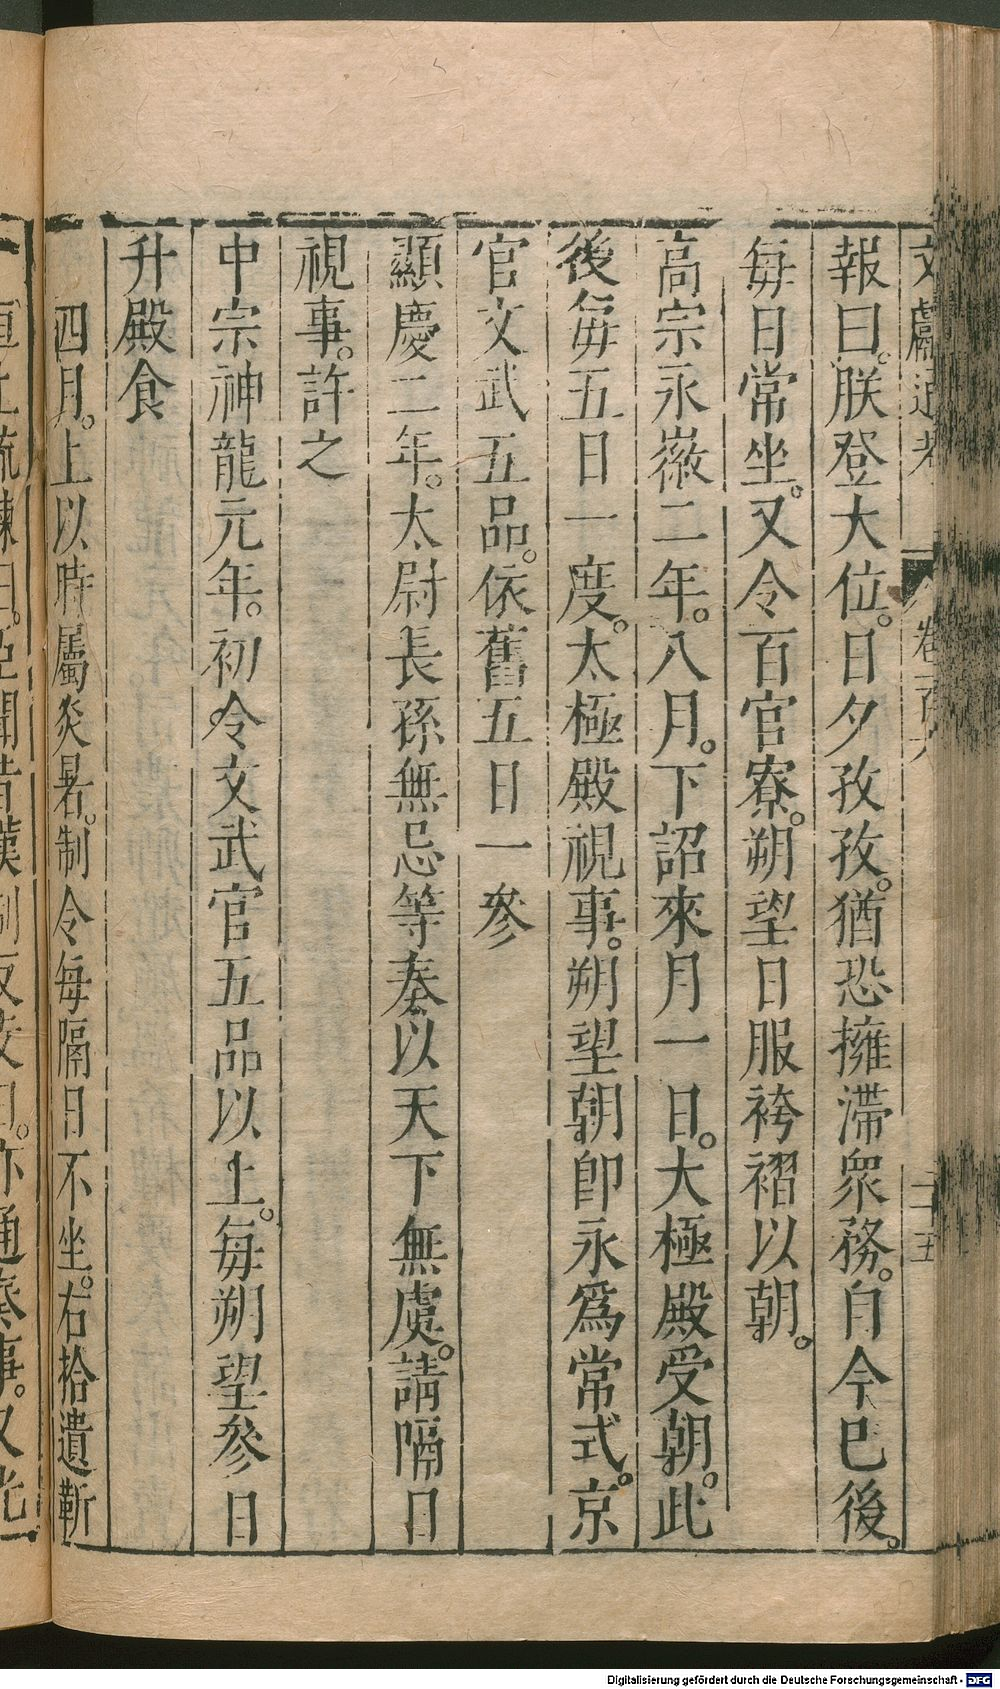 文獻通考 卷一百六 二十五
報曰。朕登大位。日夕孜孜。猶恐擁滯衆務。自今巳後。
每日常坐。又令百官寮。朔望日服袴褶以朝。
高宗永徽二年。八月。下詔來月一日。大極殿受朝。此
後每五日一度。太極殿視事。朔望朝卽永爲常式。京
官文武五品。依舊五日一參
顯慶二年。太尉長孫無忌等奏以天下無虞。請隔日
視事。許之
中宗神龍元年。初令文武官五品以上。每朔望參日
升殿食
四月。上以時屬炎暑。制令每隔日不坐。右拾遺靳
上疏諫曰。臣聞昔漢制反支日。亦通奏事。又光
Digitalisierung gefördert durch die Deutsche Forschungsgemeinschaft - DFG